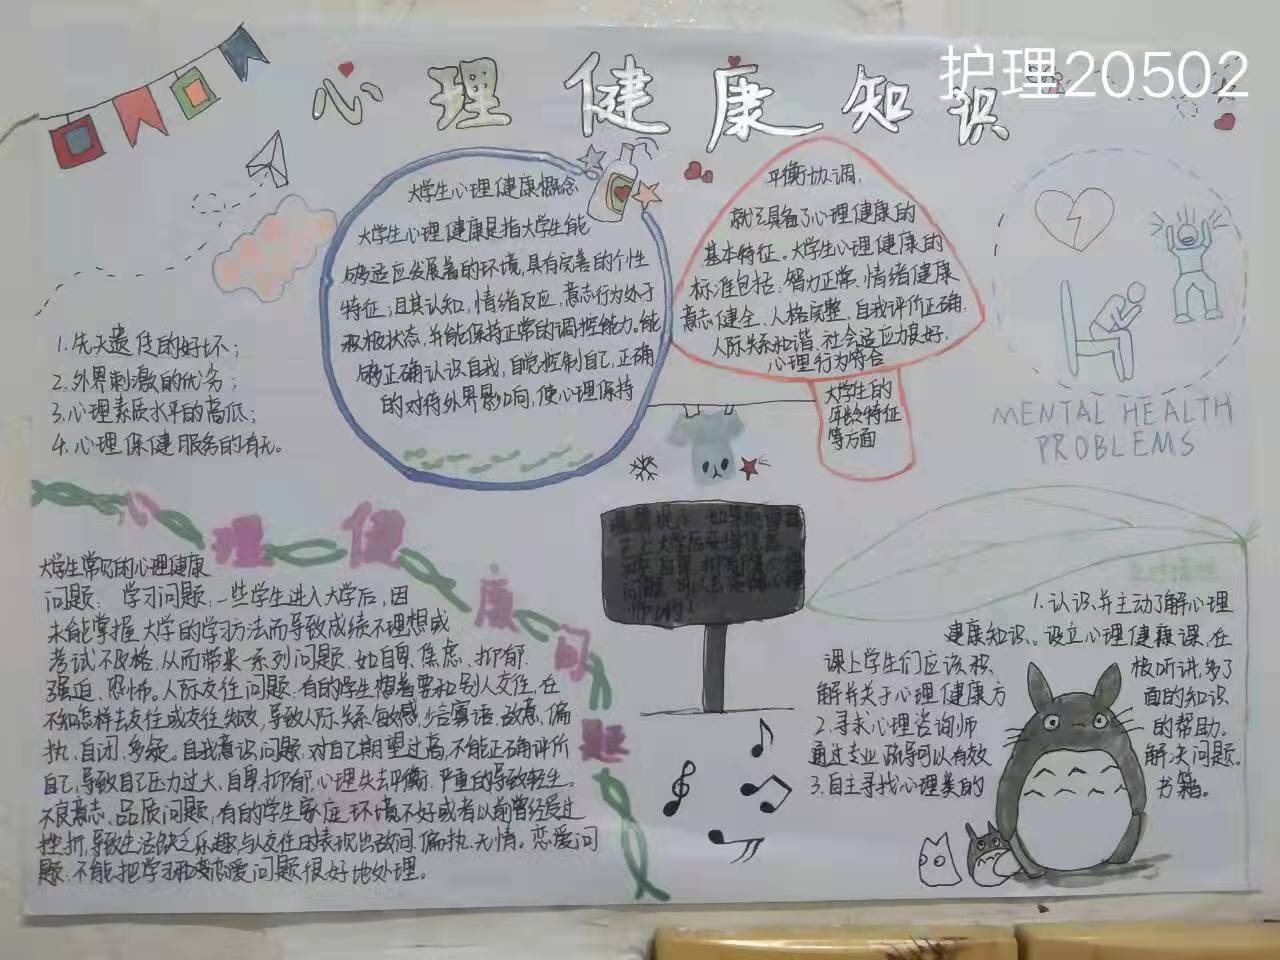 护理20502
心理健康知识
大学生心理健康概念
大学生心理健康是指大学生能
够适应发展着的环境,具有完善的个性
特征;且其认知,情绪反应,意志行为处于
积极状态,并能保持正常的调控能力。能
够正确认识自我,自觉控制自己,正确
的对待外界影响,使心理保持
平衡协调,
就已具备了心理健康的
基本特征。大学生心理健康的
标准包括:智力正常,情绪健康
意志健全,人格完整,自我评价正确,
人际关系和谐,社会适应力良好,
心理行为符合
大学生的
年龄特征
等方面
MENTAL HEALTH
PROBLEMS
1.先天遗传的好坏;
2.外界刺激的优劣;
3.心理素质水平的高低;
4.心理保健服务的有无。
心理健康问题
大学生常见的心理健康
问题: 学习问题:一些学生进入大学后,因
未能掌握大学的学习方法而导致成绩不理想或
考试不及格,从而带来一系列问题,如自卑、焦虑、抑郁、
强迫、恐怖。人际交往问题:有的学生想着要和别人交往,在
不知怎样去交往或交往失败,导致人际关系敏感,少言寡语,敌意,偏
执,自闭,多疑。自我意识问题:对自己期望过高,不能正确评价
自己,导致自己压力过大,自卑,抑郁,心理失去平衡,严重的导致轻生。
不良意志、品质问题,有的学生家庭环境不好或者以前曾经受过
挫折,导致生活缺乏乐趣与人交往时表现出敌问、偏执、无情。恋爱问
题:不能把学习和恋爱问题很好地处理。
1.认识并主动了解心理
健康知识。设立心理健康课,在
课上学生们应该积极听讲,多了
解并关于心理健康方面的知识
2.寻求心理咨询师的帮助。
通过专业疏导可以有效解决问题。
3.自主寻找心理类的书籍。